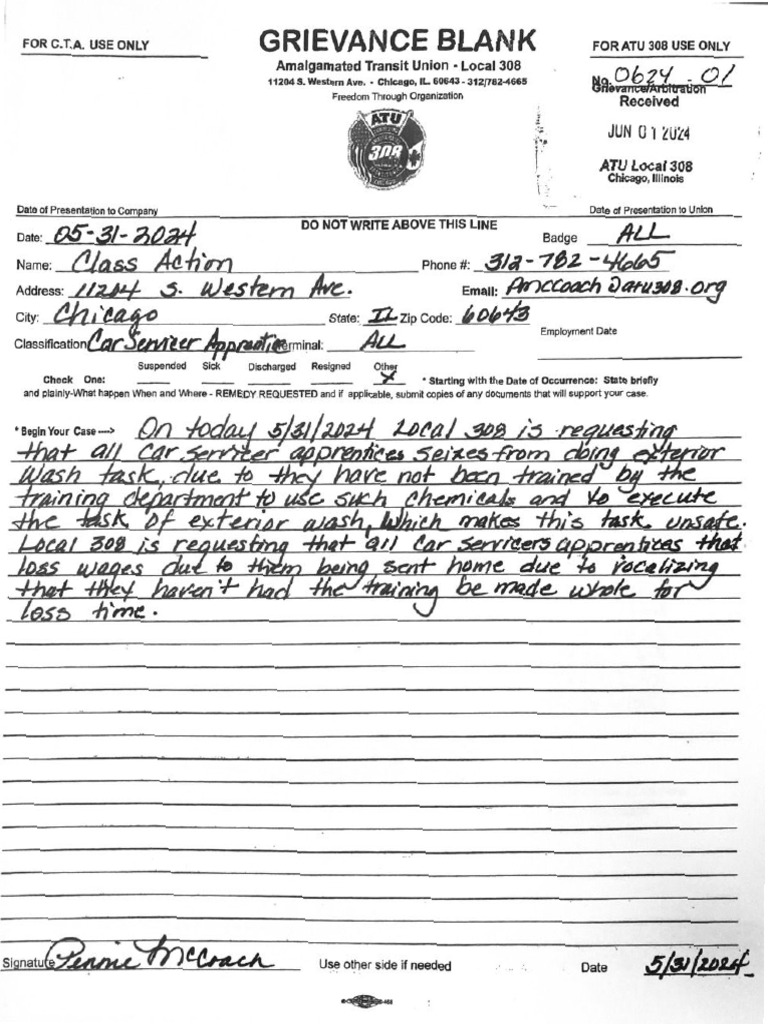 FOR C.T.A. USE ONLY
GRIEVANCE BLANK
Amalgamated Transit Union - Local 308
11204 S. Western Ave. - Chicago, IL. 60643 - 312/782-4665
Freedom Through Organization
FOR ATU 308 USE ONLY
No. 0624-01
Grievance/Arbitration
Received
JUN 01 2024
ATU Local 308
Chicago, Illinois
ATU
308
Date of Presentation to Company
DO NOT WRITE ABOVE THIS LINE
Date of Presentation to Union
Date: 05-31-2024
Badge ALL
Name: Class Action
Phone #: 312-782-4665
Address: 11204 S. Western Ave.
Email: Amccoach@atu308.org
City: Chicago State: IL Zip Code: 60643
Employment Date
Classification Car Servicer Apprentice Terminal: ALL
Suspended Sick Discharged Resigned Other
Check One: X * Starting with the Date of Occurrence: State briefly
and plainly-What happen When and Where - REMEDY REQUESTED and if applicable, submit copies of any documents that will support your case.
* Begin Your Case ----> On today 5/31/2024 Local 308 is requesting
that all Car Servicer apprentices seizes from doing exterior
wash task, due to they have not been trained by the
training department to use such chemicals and to execute
the task of exterior wash, which makes this task unsafe.
Local 308 is requesting that all Car Servicers apprentices that
loss wages due to them being sent home due to vocalizing
that they haven't had the training be made whole for
loss time.
Signature Pennie McCoach
Use other side if needed
Date 5/31/2024